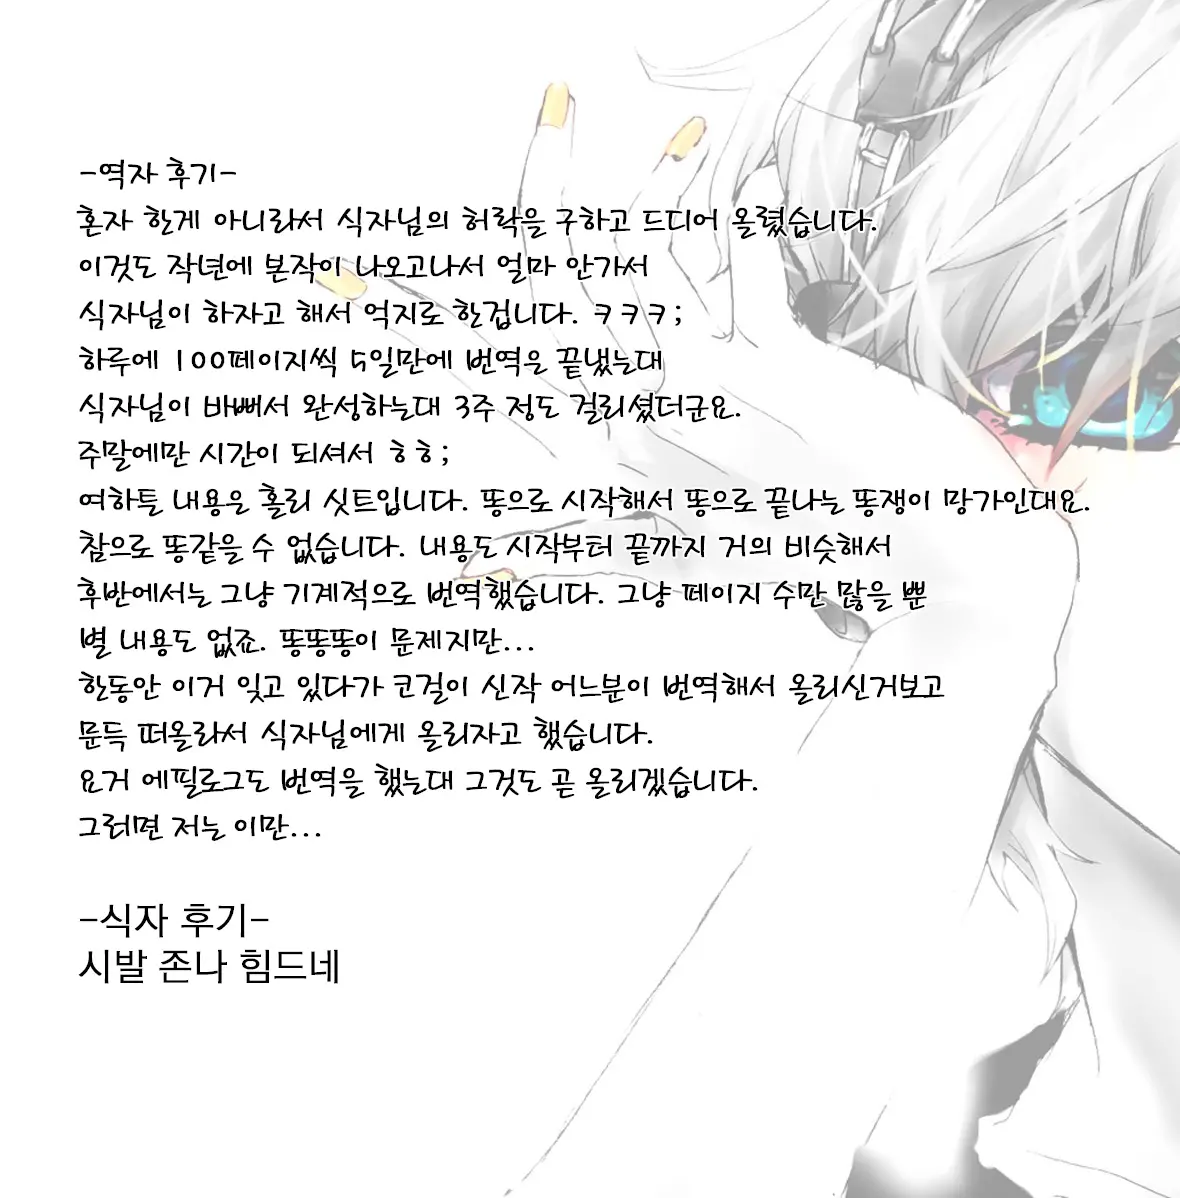 -역자 후기-
혼자 한게 아니라서 식자님의 허락을 구하고 드디어 올렸습니다.
이것도 작년에 본작이 나오고나서 얼마 안가서
식자님이 하자고 해서 억지로 한겁니다. ㅋㅋㅋ;
하루에 100페이지씩 5일만에 번역은 끝냈는대
식자님이 바뻐서 완성하는대 3주 정도 걸리셨더군요.
주말에만 시간이 되셔서 ㅎㅎ;
여하튼 내용은 홀리 싯트입니다. 똥으로 시작해서 똥으로 끝나는 똥쟁이 망가인대요.
참으로 똥같을 수 없습니다. 내용도 시작부터 끝까지 거의 비슷해서
후반에서는 그냥 기계적으로 번역했습니다. 그냥 페이지 수만 많을 뿐
별 내용도 없죠. 똥똥똥이 문제지만...
한동안 이거 잊고 있다가 코걸이 신작 어느분이 번역해서 올리신거보고
문득 떠올라서 식자님에게 올리자고 했습니다.
요거 에필로그도 번역을 했는대 그것도 곧 올리겠습니다.
그러면 저는 이만...
-식자 후기-
시발 존나 힘드네